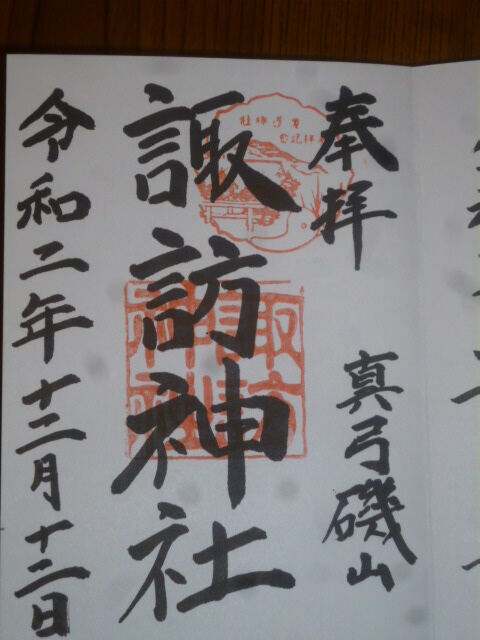 奉拝
真弓磯山
諏訪神社
諏訪神社
令和二年十二月十二日